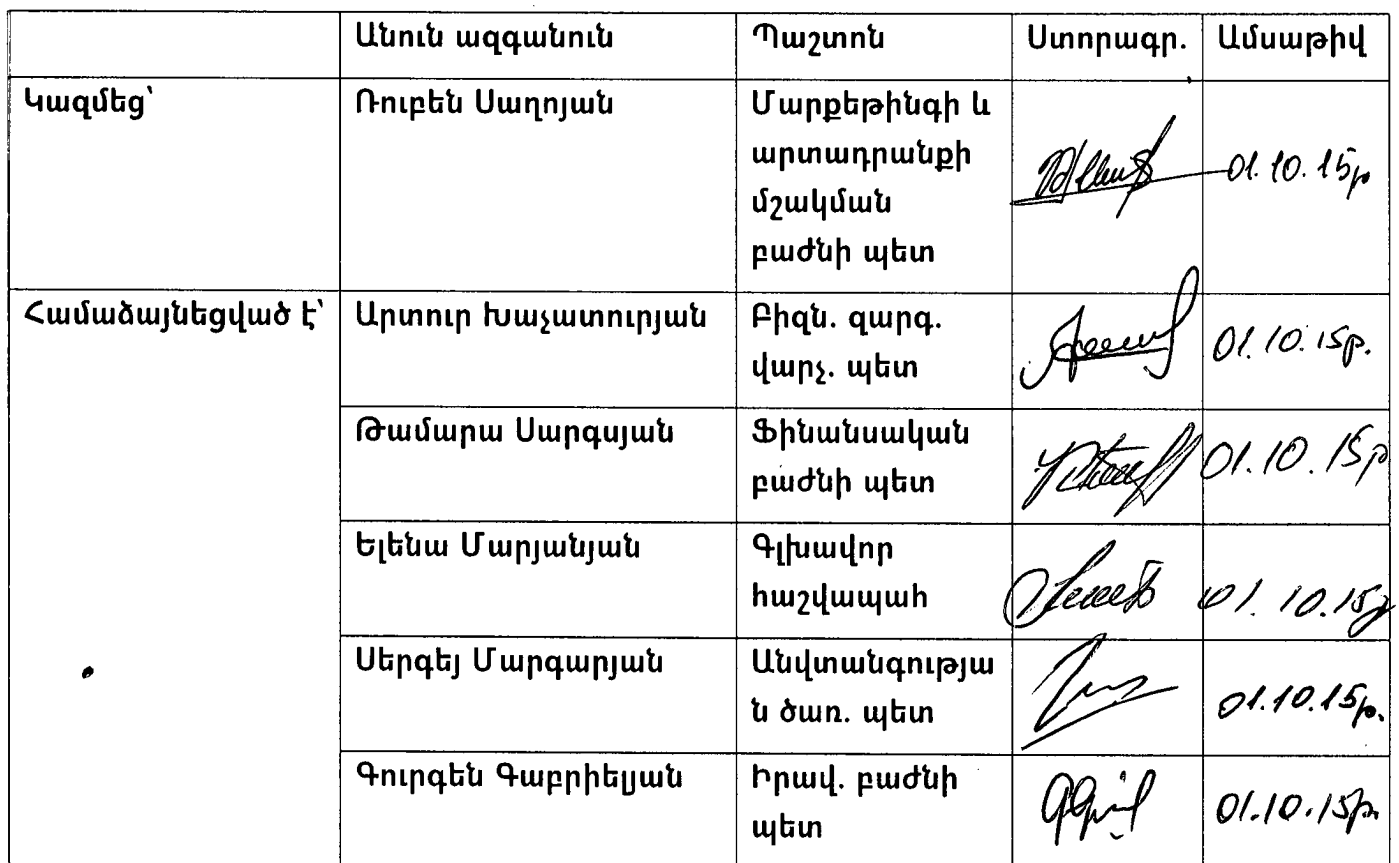 Անուն ազգանուն Պաշտոն Ստորագր. Ամսաթիվ
Կազմեց՝ Ռուբեն Սաղոյան Մարքեթինգի և
արտադրանքի
մշակման
բաժնի պետ
01.10.15թ
Համաձայնեցված է՝ Արտուր Խաչատուրյան Բիզն. զարգ.
վարչ. պետ
01.10.15թ.
Թամարա Սարգսյան Ֆինանսական
բաժնի պետ
01.10.15թ
Ելենա Մարյանյան Գլխավոր
հաշվապահ
01.10.15թ
Սերգեյ Մարգարյան Անվտանգությա
ն ծառ. պետ
01.10.15թ.
Գուրգեն Գաբրիելյան Իրավ. բաժնի
պետ
01.10.15թ